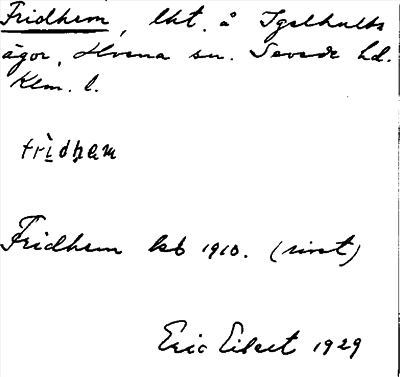 Fridhem, lht. å Igelhults
ägor, Hvena sn. Sevede hd.
Klm. l.
frìdhem
Fridhem kb 1910. (rivet)
Eric Elbert 1929